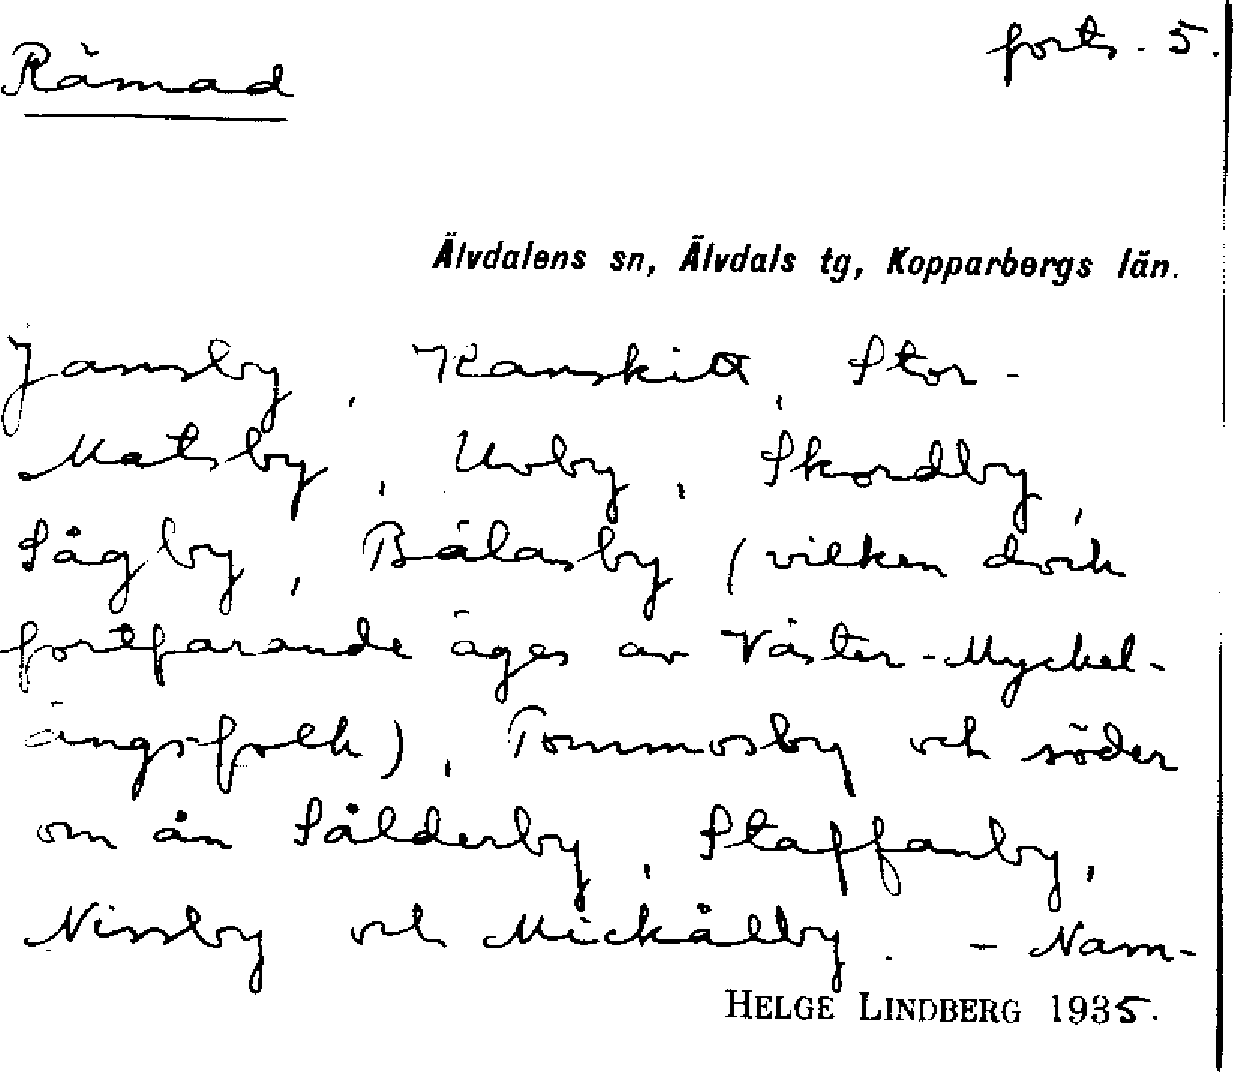 Rämad
forts. 5.
Älvdalens sn, Älvdals tg, Kopparbergs län.
Jansby, Kanskitt, Stor-
Matsby, Uvby, Skordby,
Sågby, Bälasby (vilken dock
fortfarande äges av Väster-Myckel-
ängsfolk), Tommosby och söder
om ån Sålderby, Staffanby,
Nissby och Mickålby. - Nam-
HELGE LINDBERG 1935.